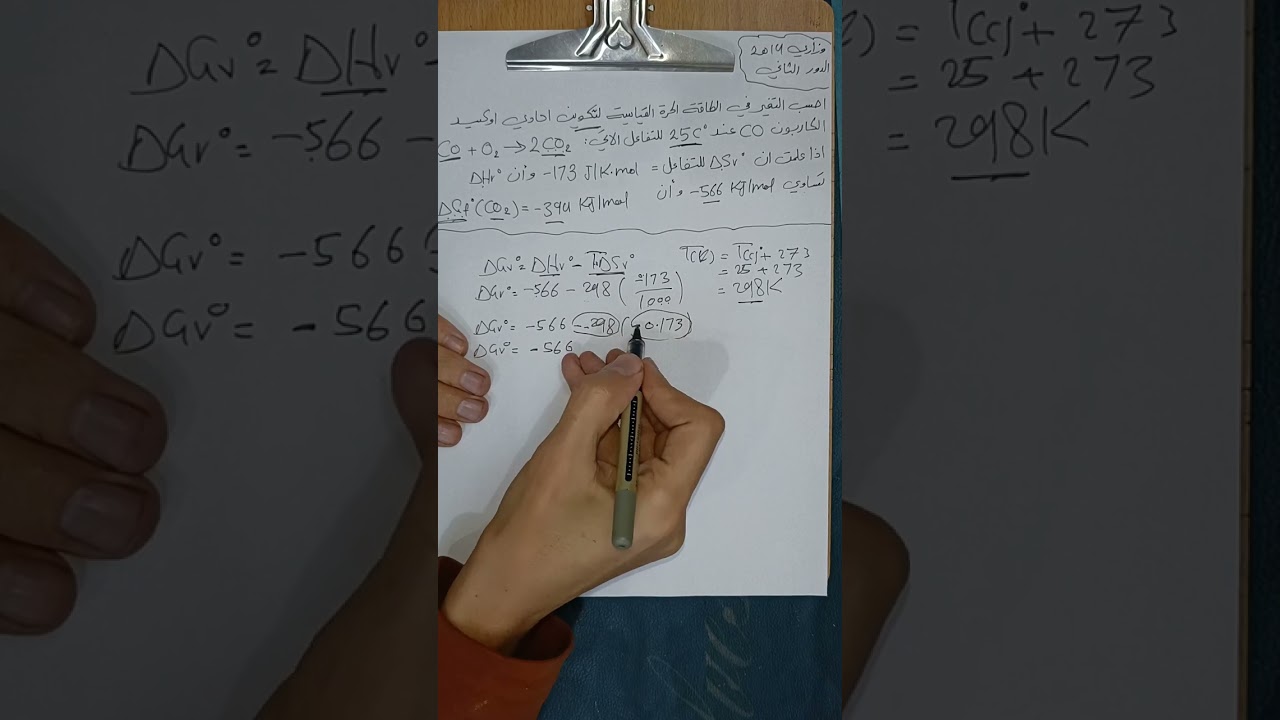 وزاري 2014
الدور الثاني
احسب التغير في الطاقة الحرة القياسية لتكوين احادي اوكسيد
الكاربون CO عند 25C° للتفاعل الآتي:
CO + O₂ → 2CO₂
اذا علمت ان ΔSr° للتفاعل = -173 J/K.mol وأن ΔHr°
تساوي -566 KJ/mol وأن
(CO₂) = -394 KJ/mol
ΔGr° = ΔHr° - TΔSr°
ΔGr° = -566 - 298 (-173/1000)
ΔGr° = -566 - 298 (-0.173)
ΔGr° = -566
T(K) = T(C)° + 273
= 25 + 273
= 298K